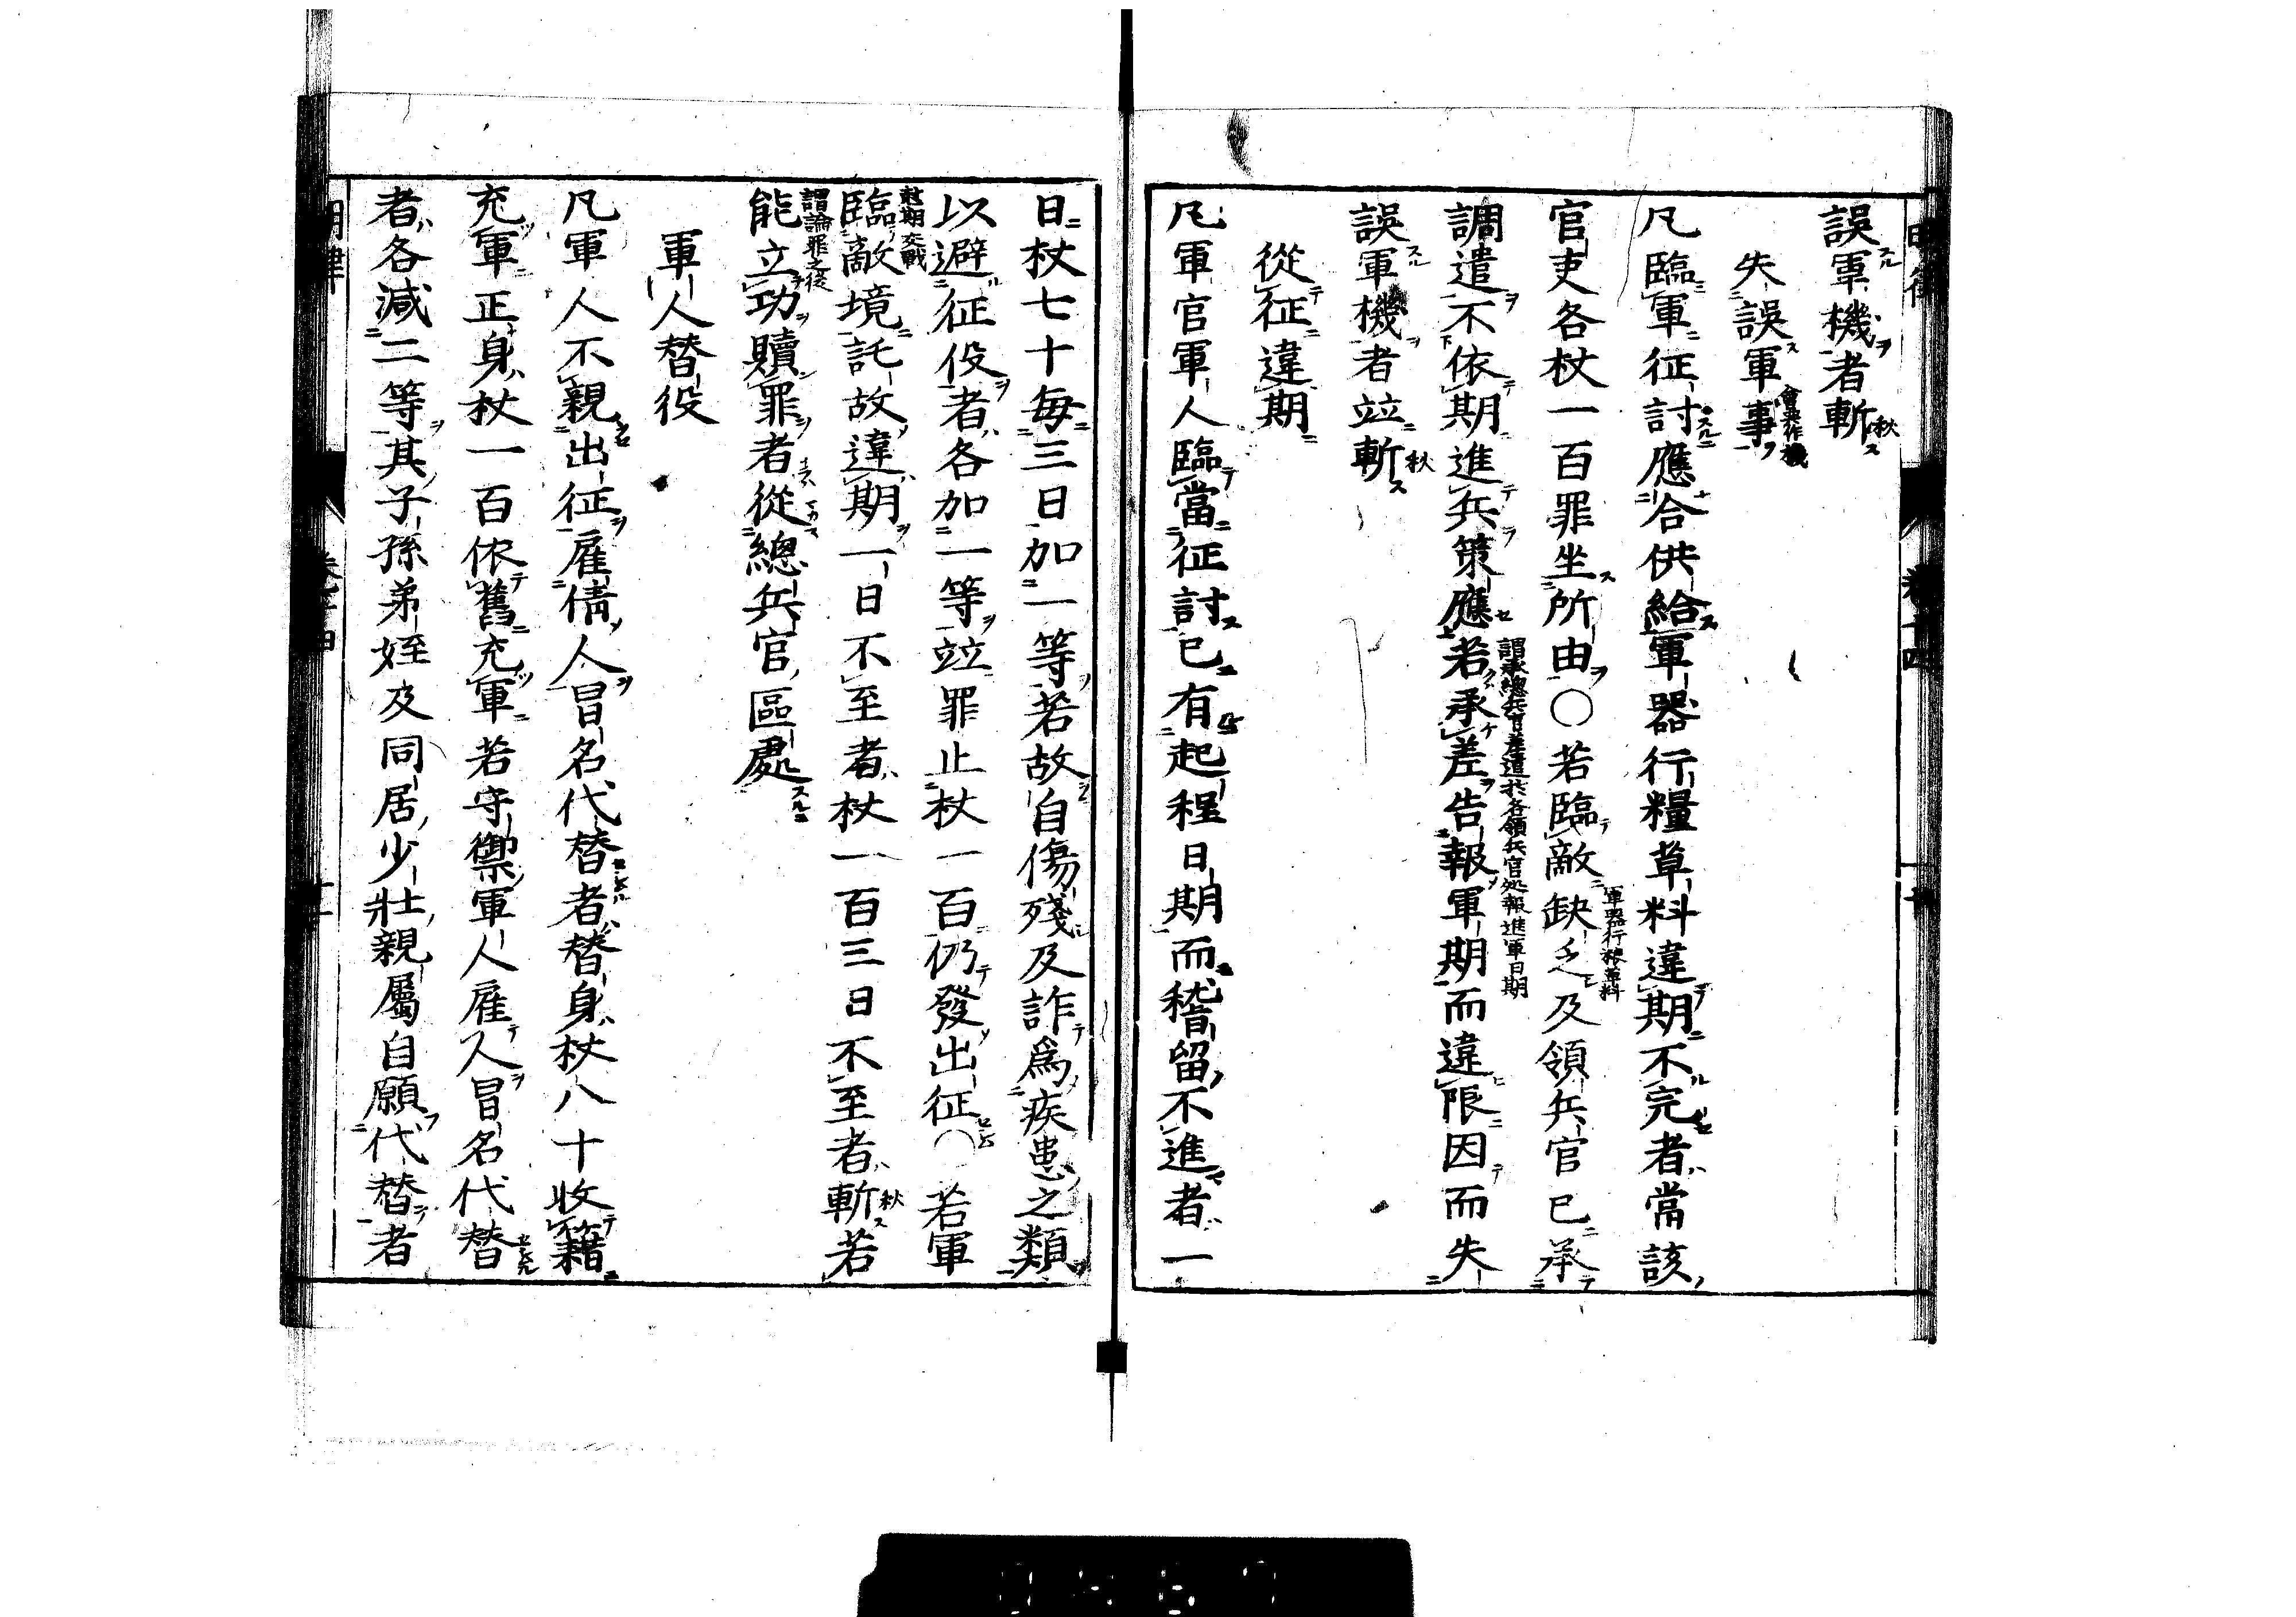 誤軍機者斬
失誤軍事
凡臨軍征討應合供給軍器行糧草料違期不完者當該
官吏各杖一百罪坐所由○若臨敵缺乏及領兵官已承
調遣不依期進兵策應若承差告報軍期而違限因而失
誤軍機者竝斬
從征違期
凡軍官軍人臨當征討已有起程日期而稽留不進者一
日杖七十每三日加一等若故自傷殘及詐爲疾患之類
以避征役者各加一等竝罪止杖一百仍發出征○若軍
臨敵境託故違期一日不至者杖一百三日不至者斬若
能立功贖罪者從總兵官區處
軍人替役
凡軍人不親出征雇倩人冒名代替者替身杖八十收籍
充軍正身杖一百依舊充軍若守禦軍人雇人冒名代替
者各減二等其子孫弟姪及同居少壯親屬自願代替者